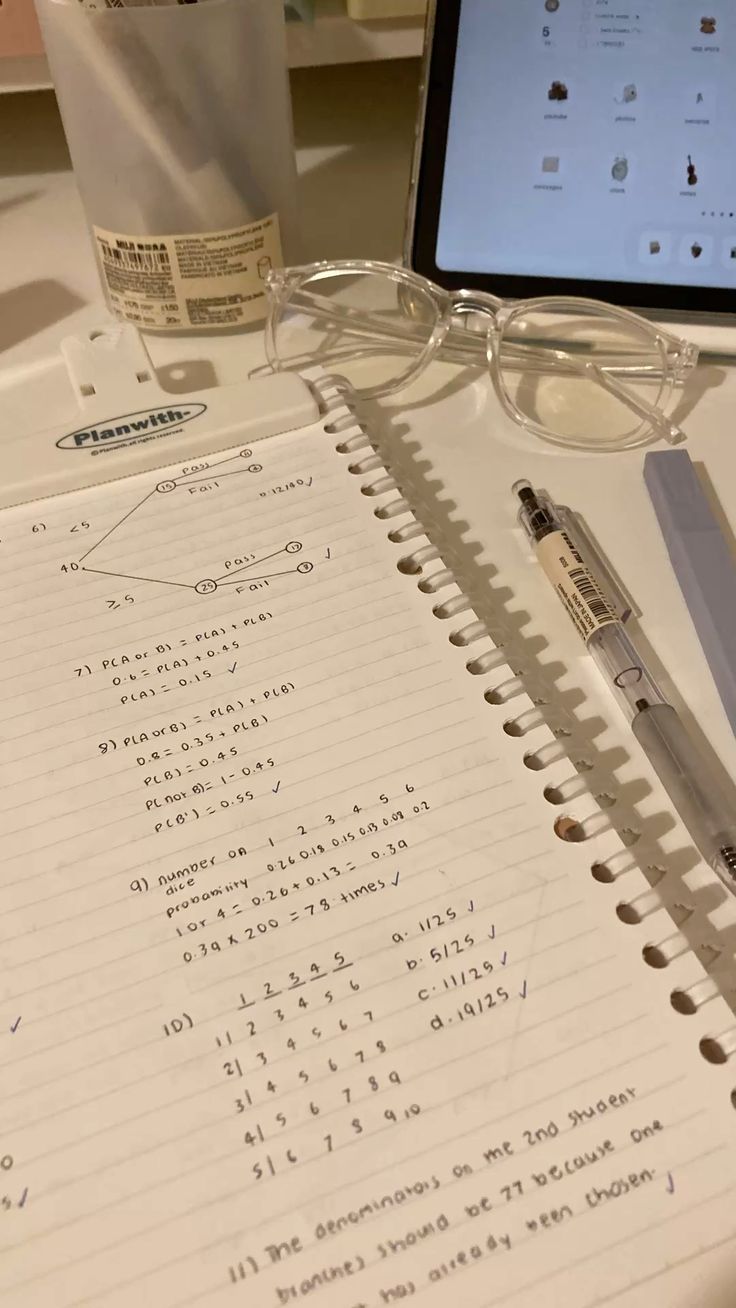 MUJ 無印良品
MATERIAL/100%POLYPROPYLENE
MADE IN VIETNAM
FABRIQUE AU VIETNAM
FABRICATO IN VIETNAM
Planwith-
©Planwith.all rights reserved.
6) <5
15
Pass
Fail
40
≥5
25
Pass
17
Fail
8
✓
7) P(A or B) = P(A) + P(B)
0.6 = P(A) + 0.45
P(A) = 0.15 ✓
8) P(A or B) = P(A) + P(B)
0.8 = 0.35 + P(B)
P(B) = 0.45
P(not B) = 1 - 0.45
P(B') = 0.55 ✓
9) number on dice 1 2 3 4 5 6
probability 0.26 0.18 0.15 0.13 0.08 0.2
1 or 4 = 0.26 + 0.13 = 0.39
0.39 x 200 = 78 times ✓
10) 1 2 3 4 5
1| 2 3 4 5 6
2| 3 4 5 6 7
3| 4 5 6 7 8
4| 5 6 7 8 9
5| 6 7 8 9 10
a. 1/25 ✓
b. 5/25 ✓
c. 11/25 ✓
d. 19/25 ✓
11) The denominators on the 2nd student
branches should be 27 because one
has already been chosen. ✓
MADE IN JAPAN